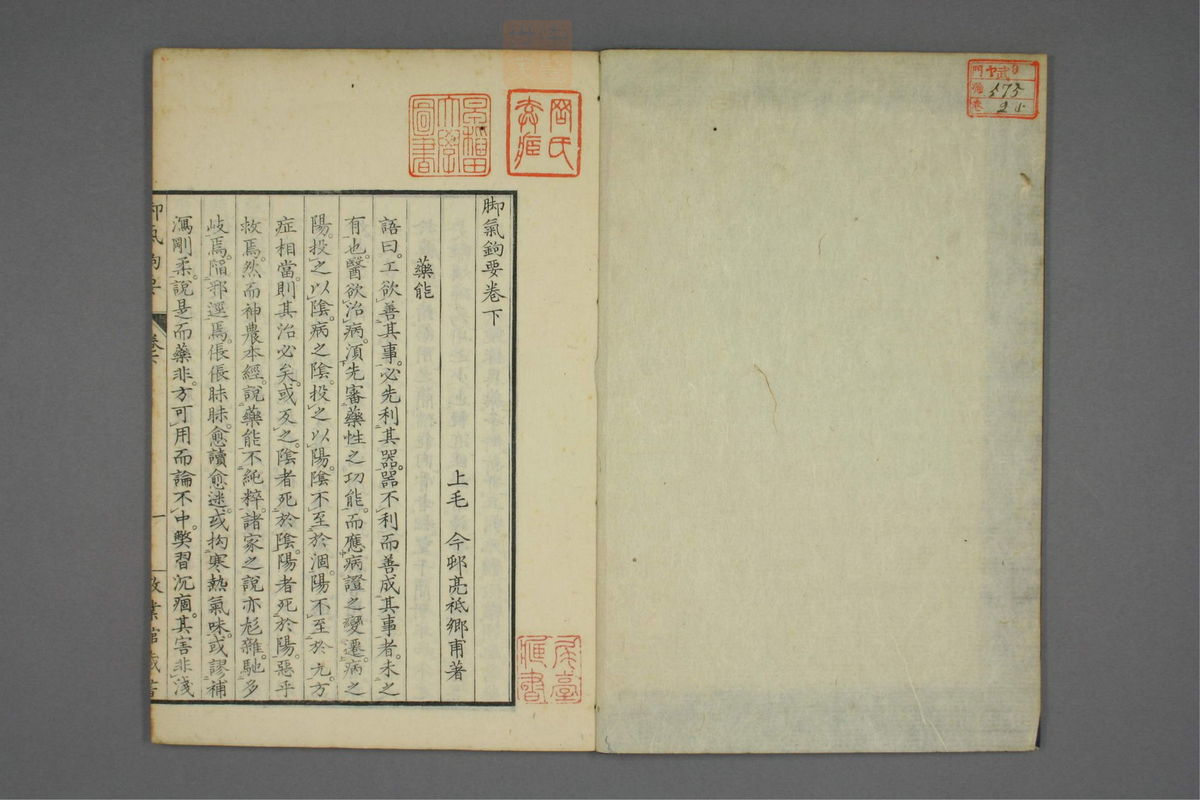 脚氣鉤要卷下
上毛 今邨亮祗卿甫著
藥能
語曰。工欲善其事。必先利其器。器不利而善成其事者。未之
有也。醫欲治病。須先審藥性之功能。而應病證之變遷。病之
陽投之以陰。病之陰。投之以陽。陰不至於涸。陽不至於亢。方
症相當。則其治必矣。或反之。陰者死於陰。陽者死於陽。惡乎
救焉。然而神農本經。說藥能不純粹。諸家之說亦尨雜。馳多
岐焉。陷邪逕焉。倀倀眛眛。愈讀愈迷。或拘寒熱氣味。或謬補
瀉剛柔。說是而藥非。方可用而論不中。弊習沉痼。其害非淺
早稻田大學圖書
門 ヤ武9
號 575
卷 2止